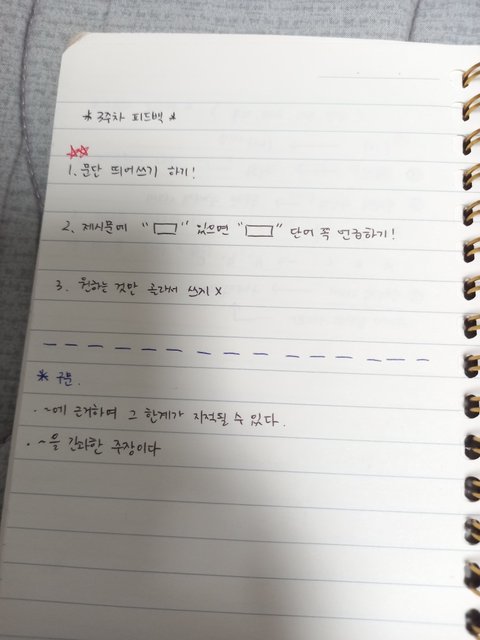 * 3주차 피드백 *
☆☆
1. 문단 띄어쓰기 하기!
2. 제시문에 "▭" 있으면 "▭" 단어 꼭 언급하기!
3. 원하는 것만 골라서 쓰지 X
* 구문.
· ~에 근거하여 그 한계가 지적될 수 있다.
· ~을 간과한 주장이다